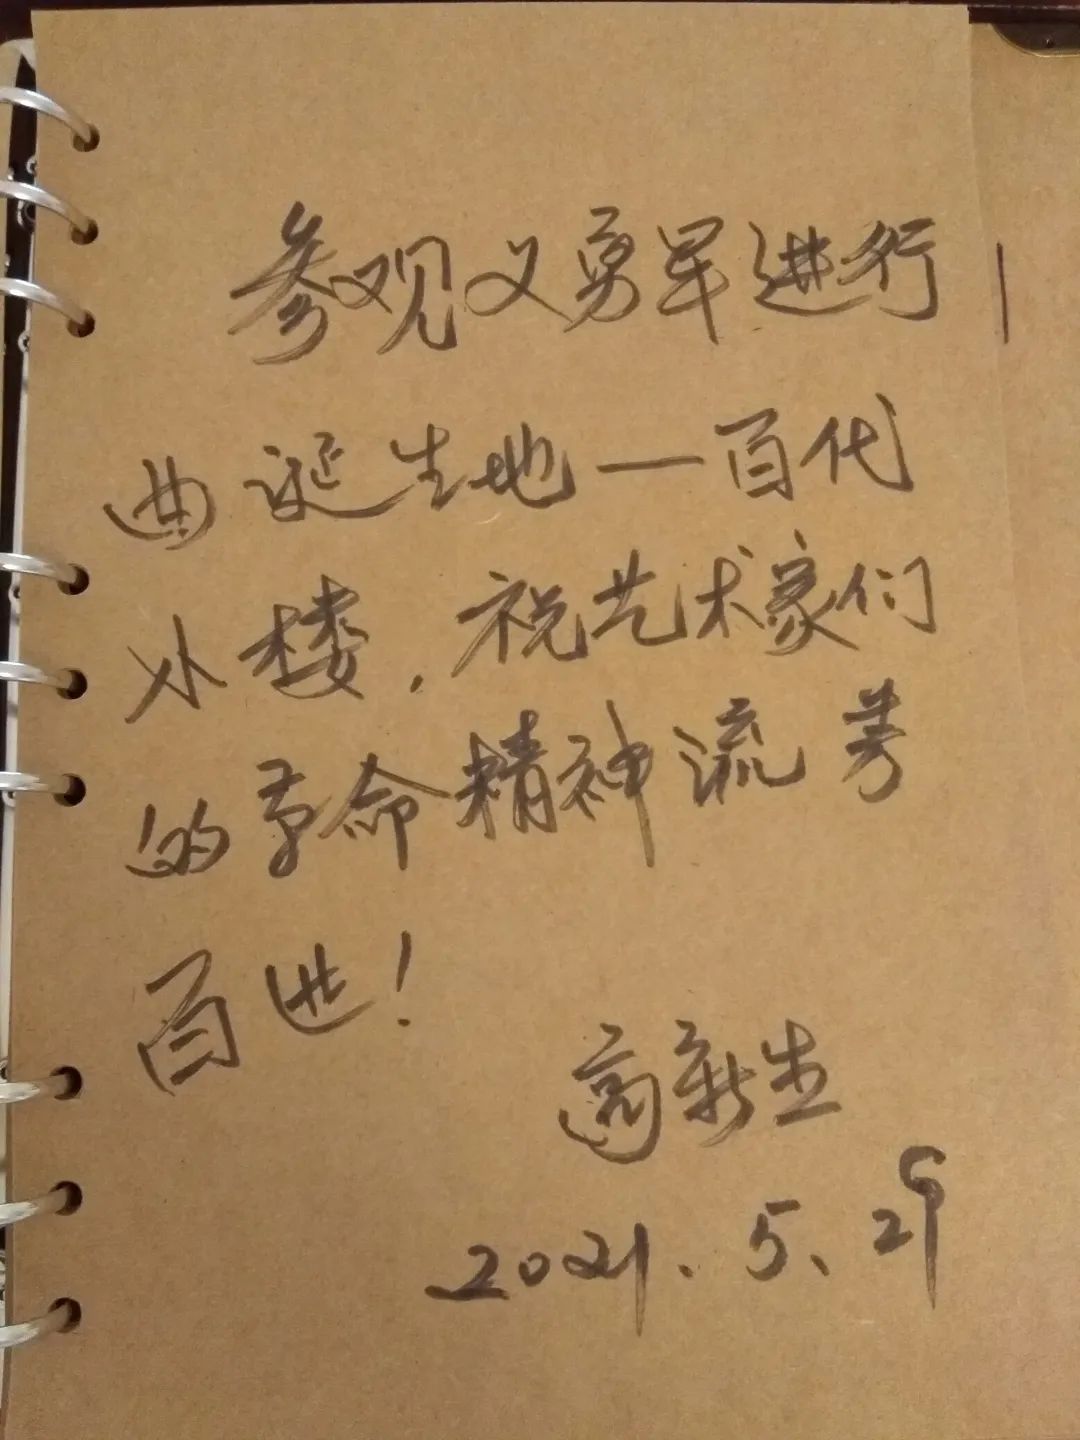 参观义勇军进行
曲诞生地—百代
小楼，祝艺术家们
的革命精神流芳
百世！
高新生
2021.5.29